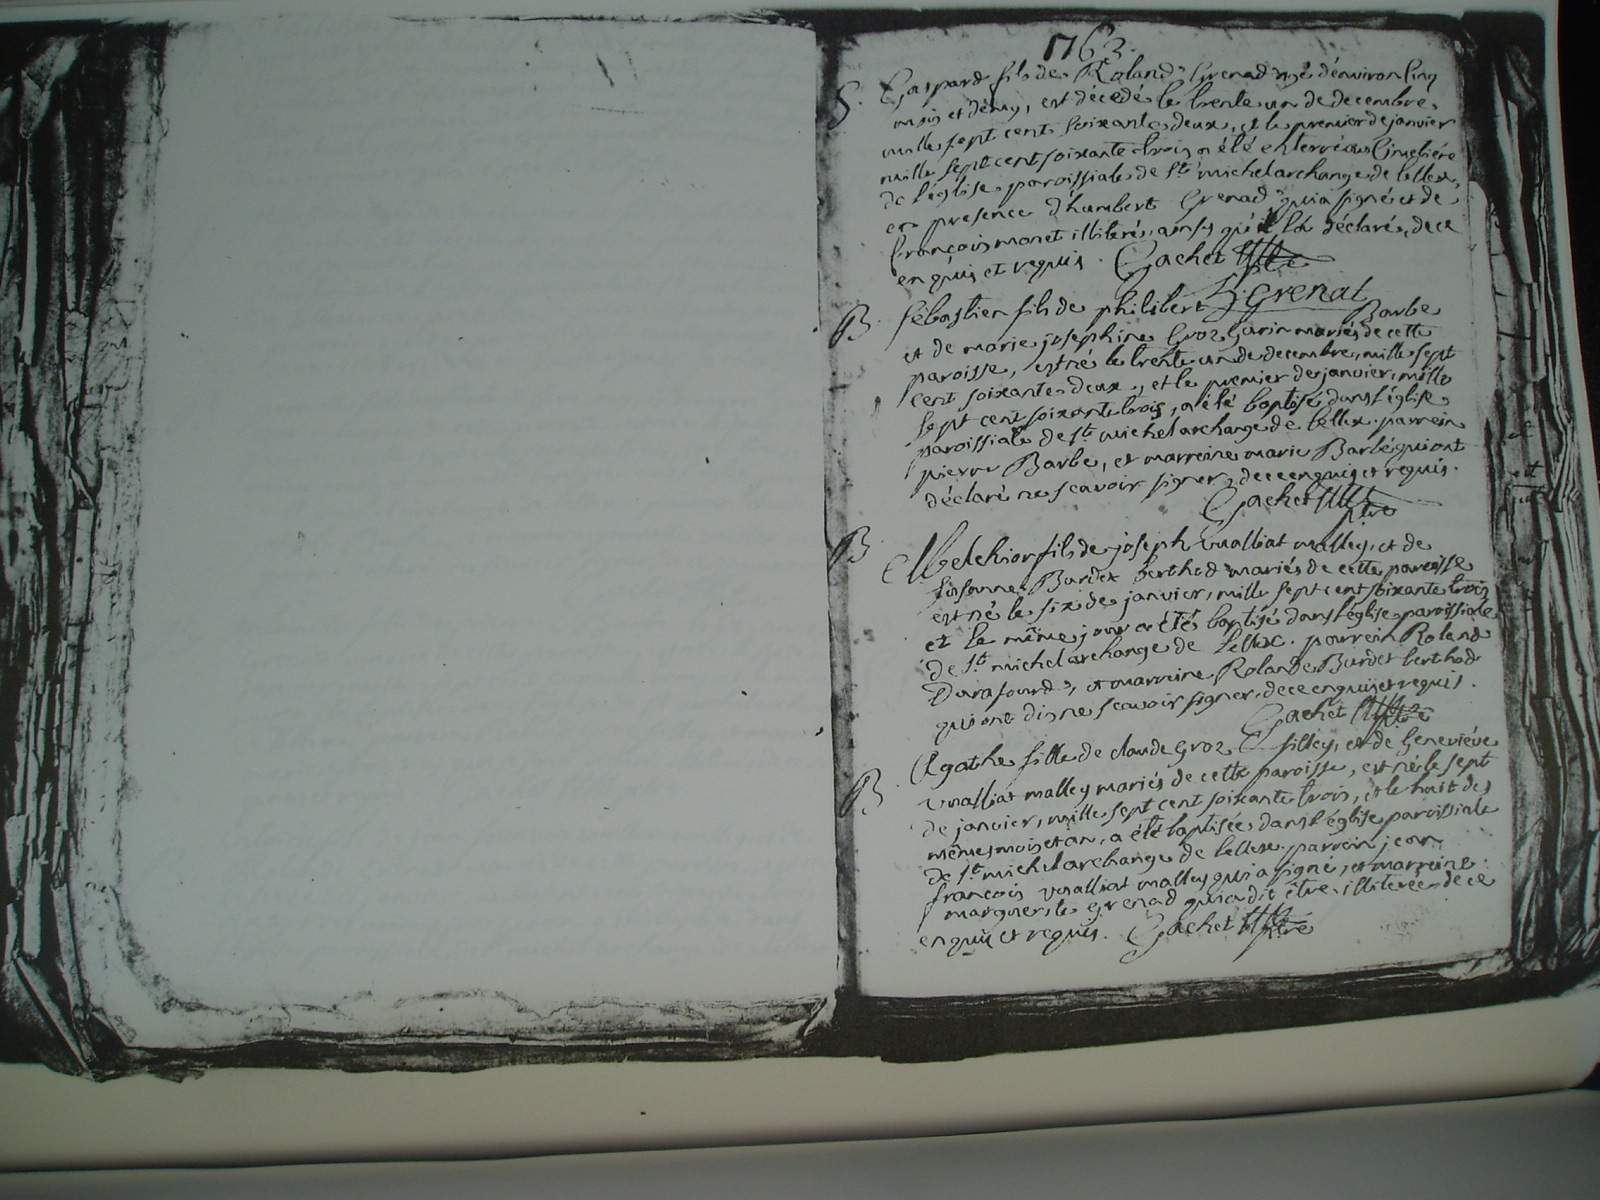 1763.
S. Gaspard fils de Roland Grenad agé d'environ cinq
mois et démy, est décedé le trente un de decembre,
mille sept cent soixante deux, et le premier de janvier
mille sept cent soixante trois a été enterré au Cimetiére
de l'église paroissiale de St michel archange de lellex,
en presence d'humbert Grenad qui a signé et de
françois monet illiteré, ainsy qu'il l'a déclaré, de ce
enquis et requis. Gachet ptre
h. Grenat
B. Sébastien fils de philibert Barbe
et de marie josephine Groz mariés de cette
paroisse, est né le trente un de decembre, mille sept
cent soixante deux, et le premier de janvier, mille
sept cent soixante trois, a été baptisé dans l'église
paroissiale de St michel archange de lellex. parrein
pierre Barbe, et marreine marie Barbe qui ont
déclaré ne scavoir signer, de ce enquis et requis.
Gachet ptre
B. Melchior fils de joseph vualliat malley, et de
Susanne Burdet berthod mariés de cette paroisse
est né le six de janvier, mille sept cent soixante trois
et le même jour a été baptisé dans l'église paroissiale
de St michel archange de Lellex. parrein Roland
Durafourd, et marreine Rolande Burdet berthod
qui ont dis ne scavoir signer, de ce enquis et requis.
Gachet ptre
B. Agathe fille de claude Groz filley, et de Geneviéve
vualliat malley mariés de cette paroisse, est né le sept
de janvier, mille sept cent soixante trois, et le huit des
mêmes mois et an, a été baptisée dans l'église paroissiale
de St michel archange de lellex. parrein jean
françois vualliat malley qui a signé, et marreine
marguerite Grenad qui a dit être illiterée de ce
enquis et requis. Gachet ptre